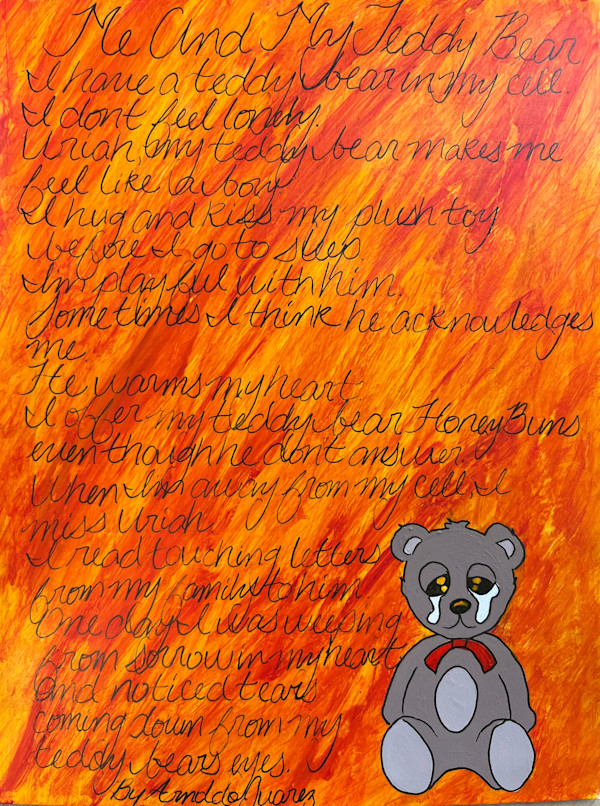 Me And My Teddy Bear
I have a teddy bear in my cell.
I dont feel lonely.
Uriah, my teddy bear makes me
feel like a boy
I hug and kiss my plush toy
before I go to sleep.
I'm playful with him.
Sometimes I think he acknowledges
me.
He warms my heart.
I offer my teddy bear Honey Buns
even though he dont answer.
When I'm away from my cell, I
miss Uriah.
I read touching letters
from my family to him
One day I was weeping
from sorrow in my heart
And noticed tears
coming down from my
teddy bears eyes.
By Juarez